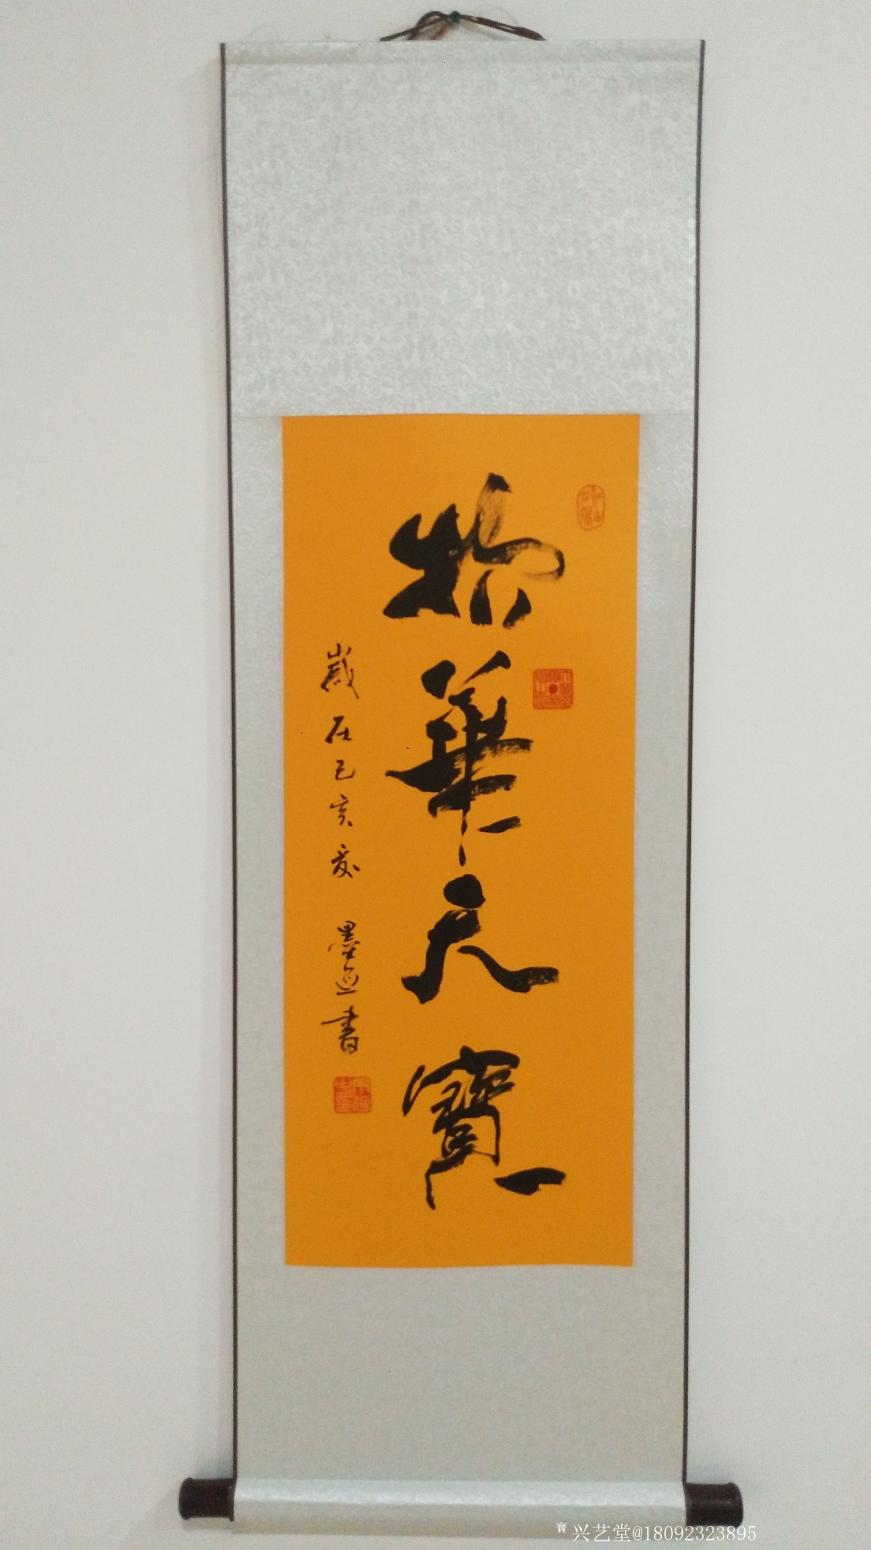 物華天寶
歲在己亥夏 墨迪書
兴艺堂@18092323895